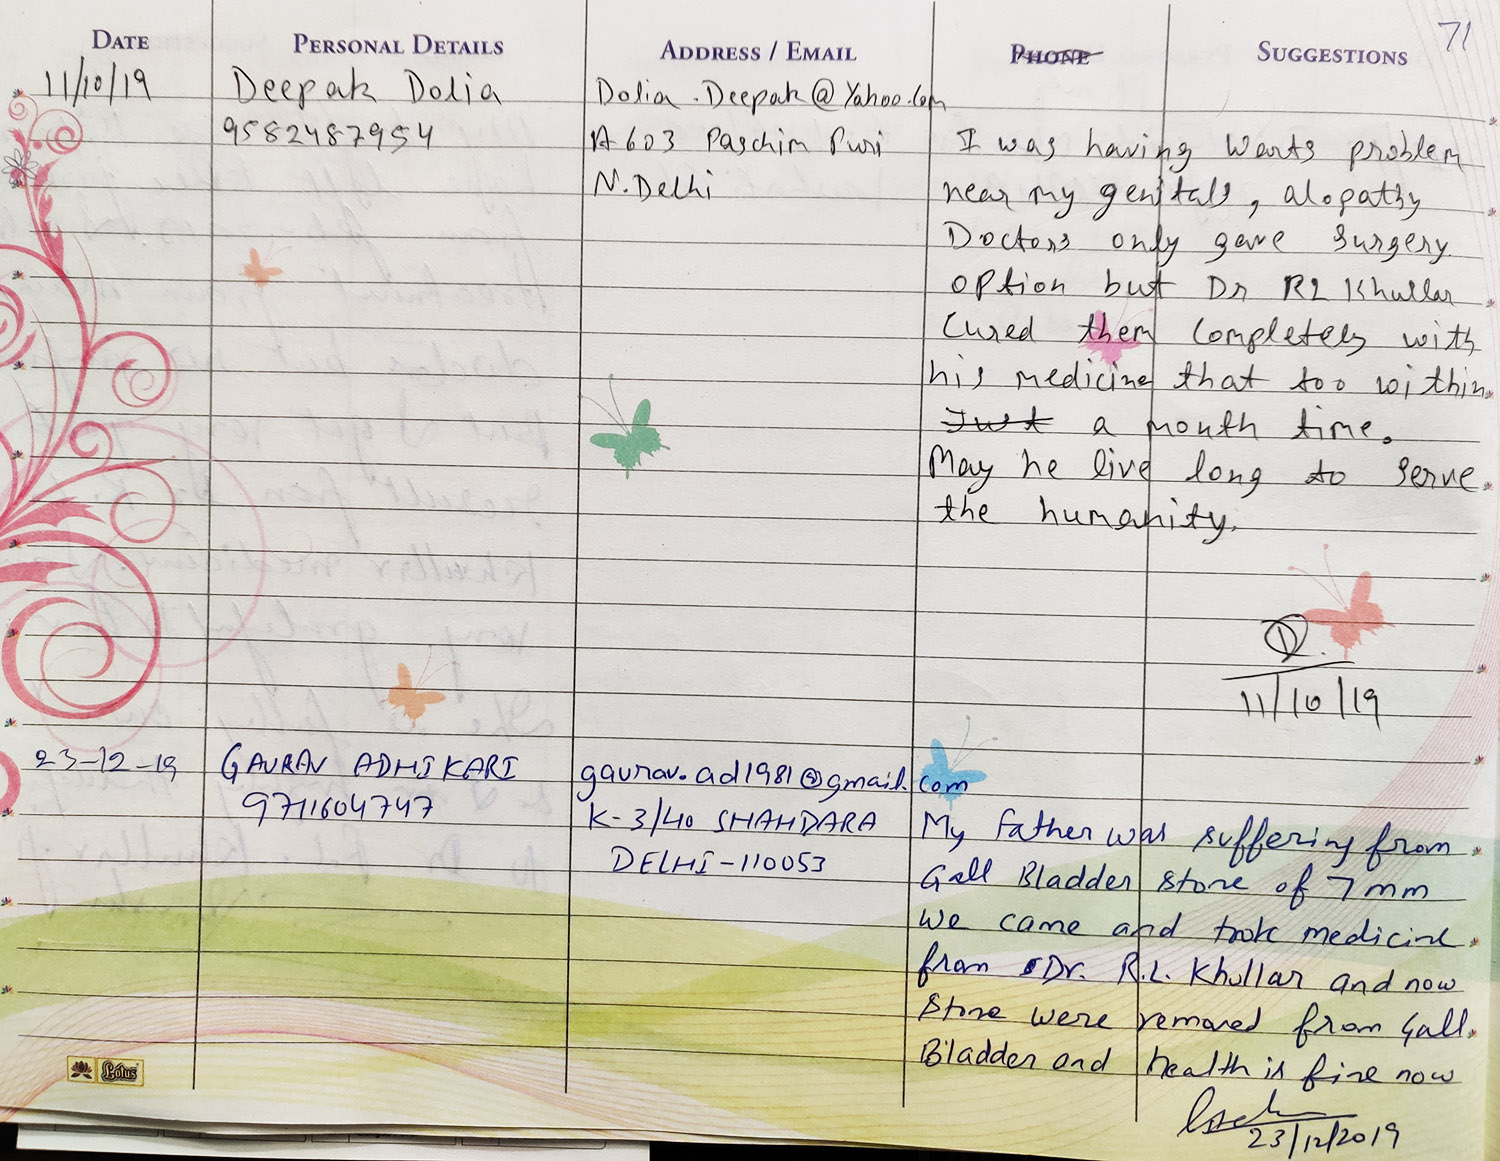 71
DATE PERSONAL DETAILS ADDRESS / EMAIL PHONE SUGGESTIONS
11/10/19 Deepak Dolia Dolia.Deepak@Yahoo.com
9582487954 A 603 Paschim Puri
N. Delhi
I was having warts problem
near my genitals, alopathy
Doctors only gave surgery
option but Dr RL Khullar
Cured them completely with
his medicine that too within
Just a month time.
May he live long to serve
the humanity.
D.
11/10/19
23-12-19 GAURAV ADHIKARI gaurav.ad1981@gmail.com
9711604747 K-3/40 SHAHDARA
DELHI-110053
My father was suffering from
Gall Bladder stone of 7mm
We came and took medicine
from Dr. R.L. Khullar and now
Stone were removed from Gall
Bladder and health is fine now
23/12/2019
Lotus